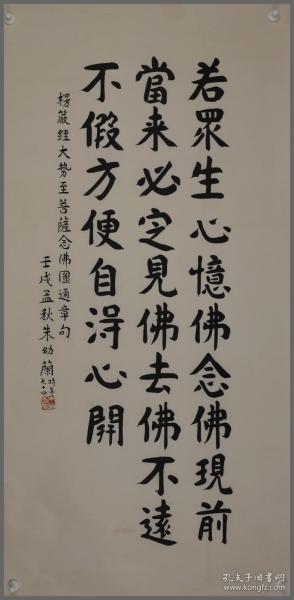 若眾生心憶佛念佛現前
當来必定見佛去佛不遠
不假方便自淂心開
楞嚴經大势至菩薩念佛圓通章句
壬戌孟秋朱幼蘭時年七十四
孔夫子旧书网